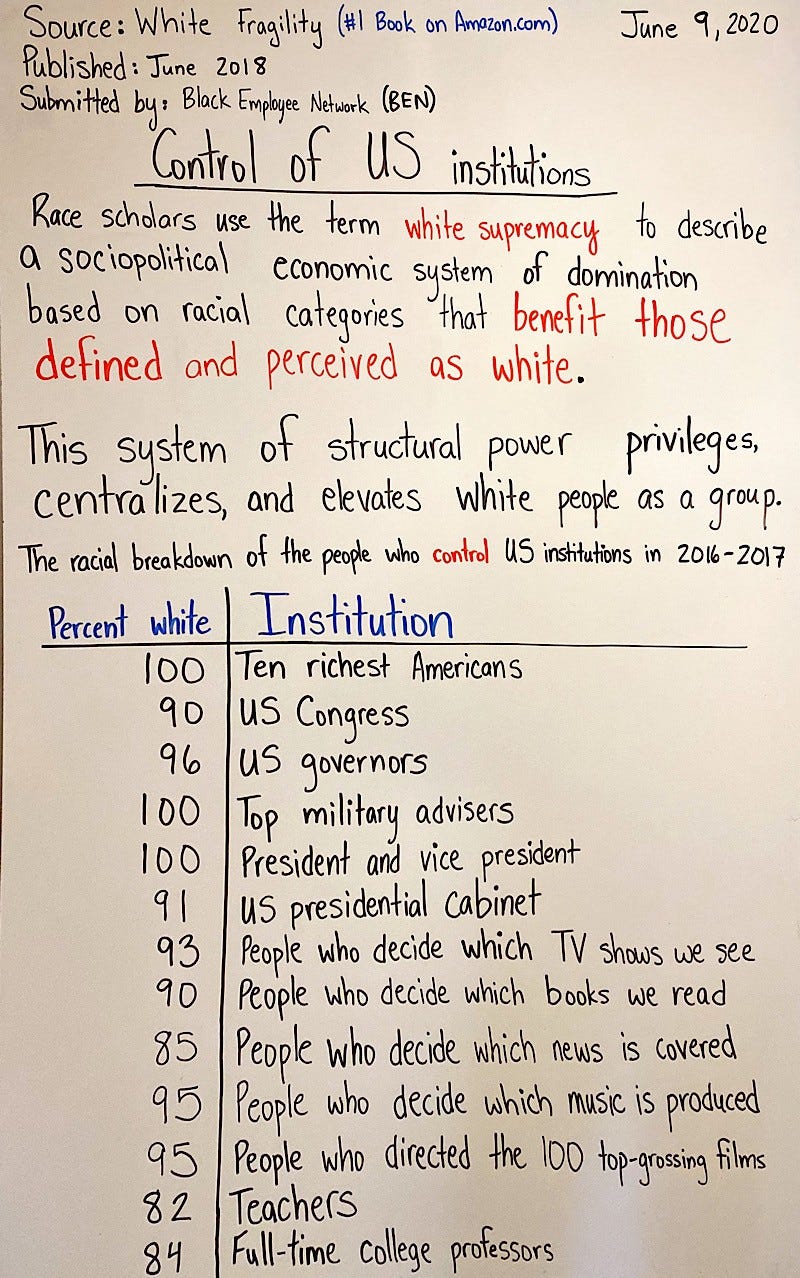 Source: White Fragility (#1 Book on Amazon.com) June 9, 2020
Published: June 2018
Submitted by: Black Employee Network (BEN)
Control of US institutions
Race scholars use the term white supremacy to describe
a sociopolitical economic system of domination
based on racial categories that benefit those
defined and perceived as white.
This system of structural power privileges,
centralizes, and elevates white people as a group.
The racial breakdown of the people who control US institutions in 2016-2017
Percent white Institution
100 Ten richest Americans
90 US Congress
96 US governors
100 Top military advisers
100 President and vice president
91 US presidential Cabinet
93 People who decide which TV shows we see
90 People who decide which books we read
85 People who decide which news is covered
95 People who decide which music is produced
95 People who directed the 100 top-grossing films
82 Teachers
84 Full-time college professors